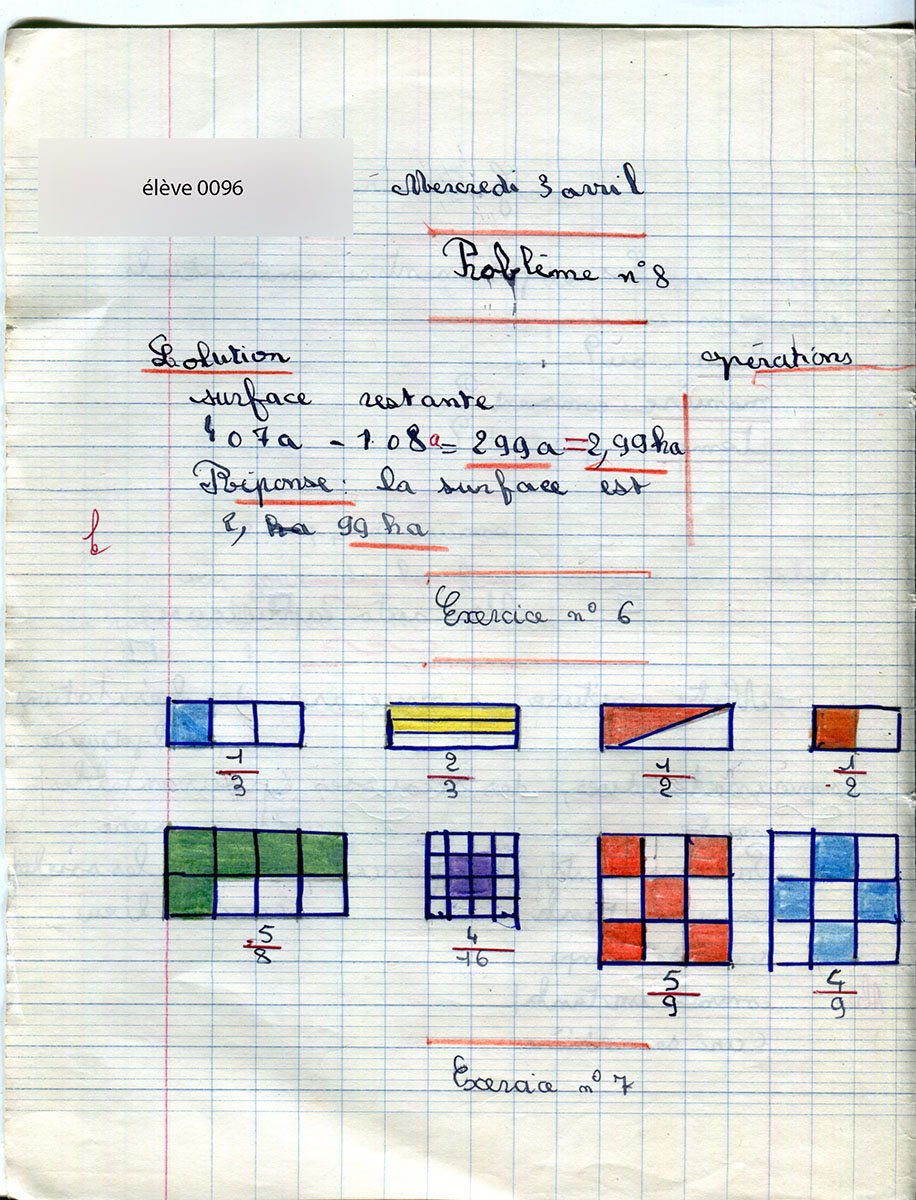 élève 0096
Mercredi 3 avril
Problème n° 8
Solution opérations
surface restante
407a - 108a = 299a = 2,99ha
Réponse: la surface est
2, ha 99 ha
b
Exercice n° 6
1/3 2/3 1/2 1/2
5/8 4/16 5/9 4/9
Exercice n° 7